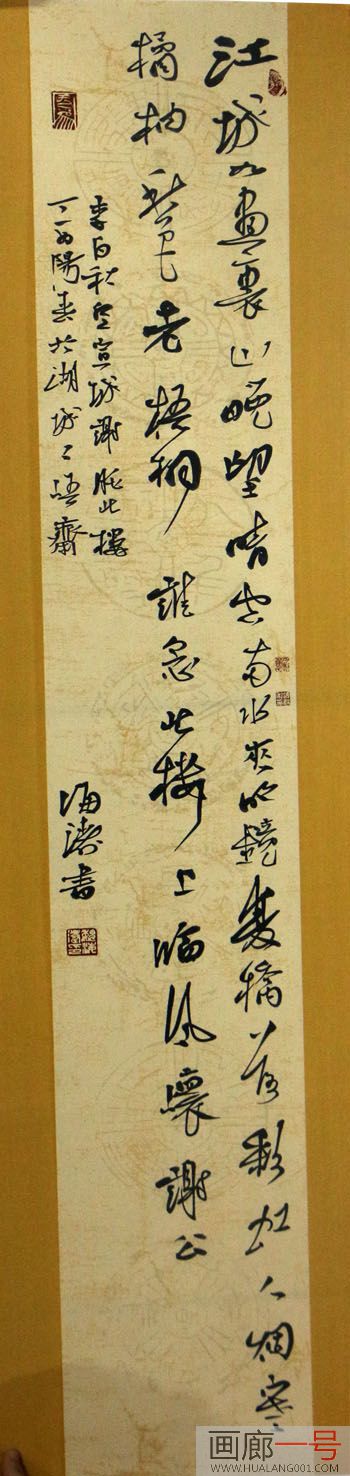 江城如畫裏山晚望晴空兩水夾明鏡雙橋落彩虹人烟寒
橘柚秋色老梧桐誰念此樓上臨風懷謝公
李白秋登宣城謝朓北樓
丁酉陽春於湖城悟齋
海濤書
画廊一号
WWW.HUALANG001.COM